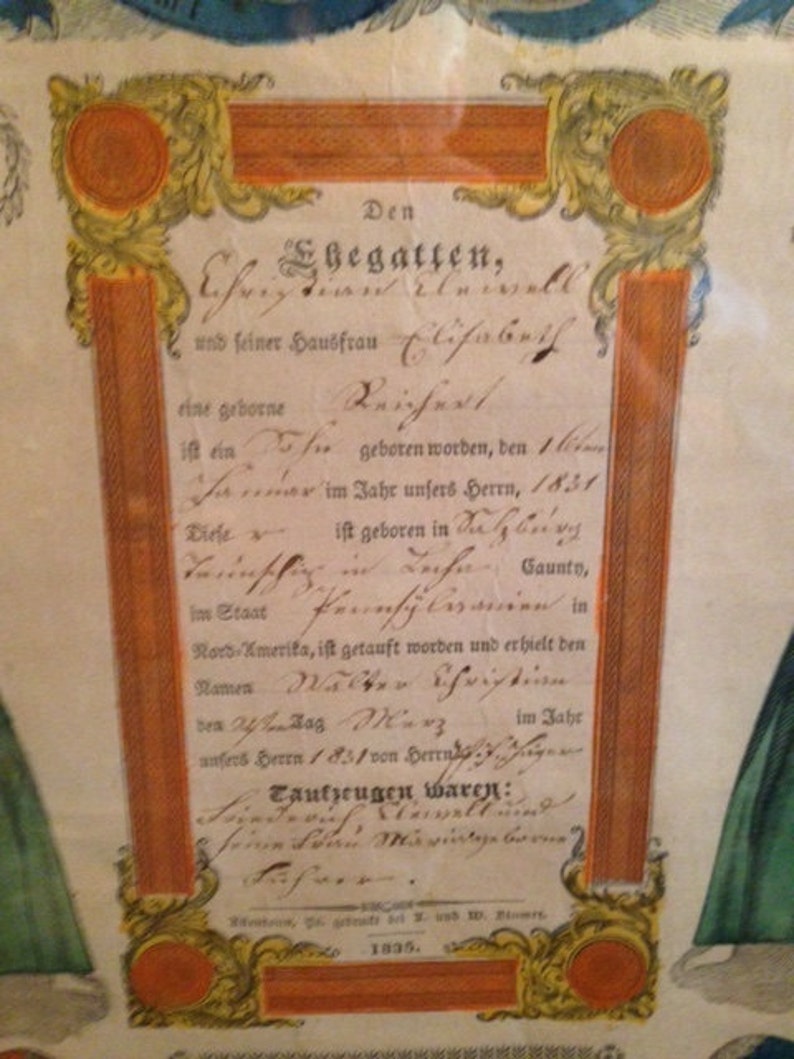 Den
Ehegatten,
Christian Clewell
und seiner Hausfrau Elisabeth
eine geborne Reichert
ist ein Sohn geboren worden, den 16ten
Januar im Jahr unsers Herrn, 1831
Diese r ist geboren in Salzburg
Taunschip in Lecha Caunty,
im Staat Pennsylvanien in
Nord-Amerika, ist getauft worden und erhielt den
Namen Walter Christian
den Tag Merz im Jahr
unsers Herrn 1831 von Herrn Jäger
Taufzeugen waren:
Friederich Clewell und
seine Frau Maria geborne
Führer.
Allentaun, Pa. gedruckt bei A. und W. Blumer.
1835.